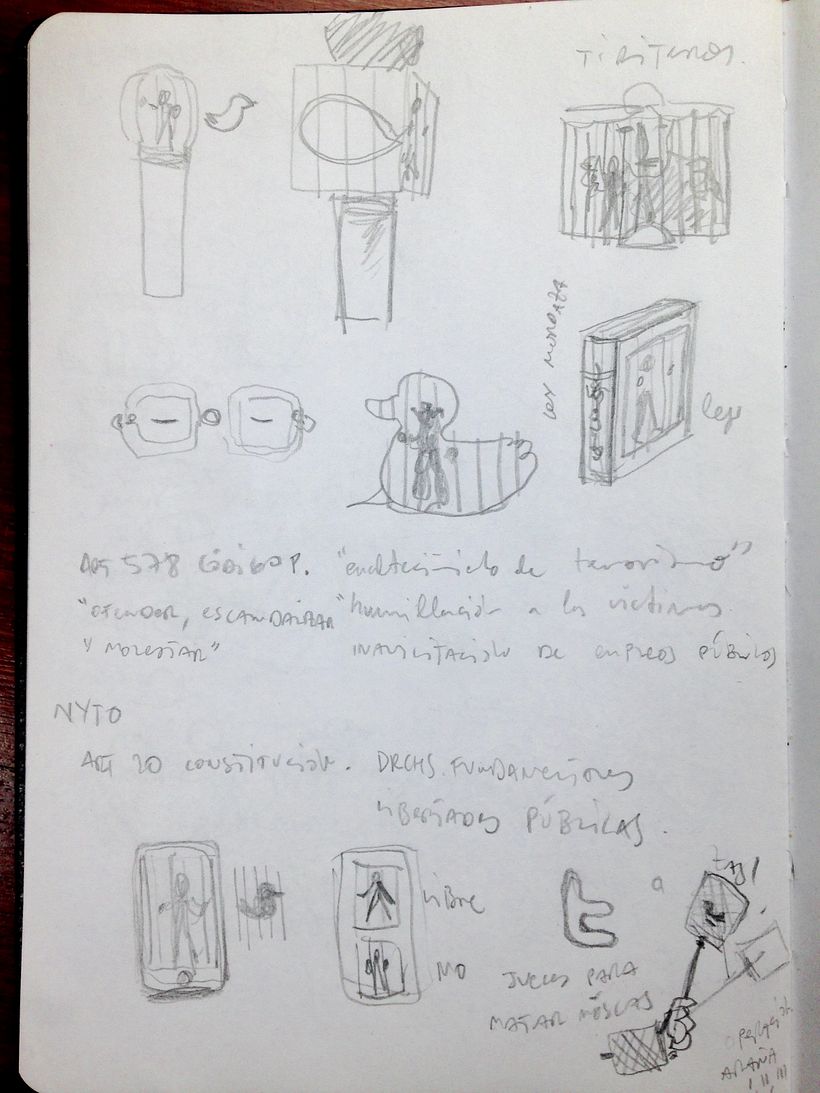 TiriTeros.
Ley Mordaza
Ley
Art 578 Código P. "enaltecimiento de terrorismo"
"OFENDER, ESCANDALIZAR "humillación a las víctimas
Y MOLESTAR" INAVILITACIÓN DE EMPLEOS PÚBLICOS
NYTO
Art 20 CONSTITUCIÓN. DRCHS. FUNDAMENTALES
LIBERTADES PÚBLICAS.
LIBRE
NO
a
ZAS!
JUECES PARA
MATAR MOSCAS
OPERACIÓN
ARAÑA
I II III